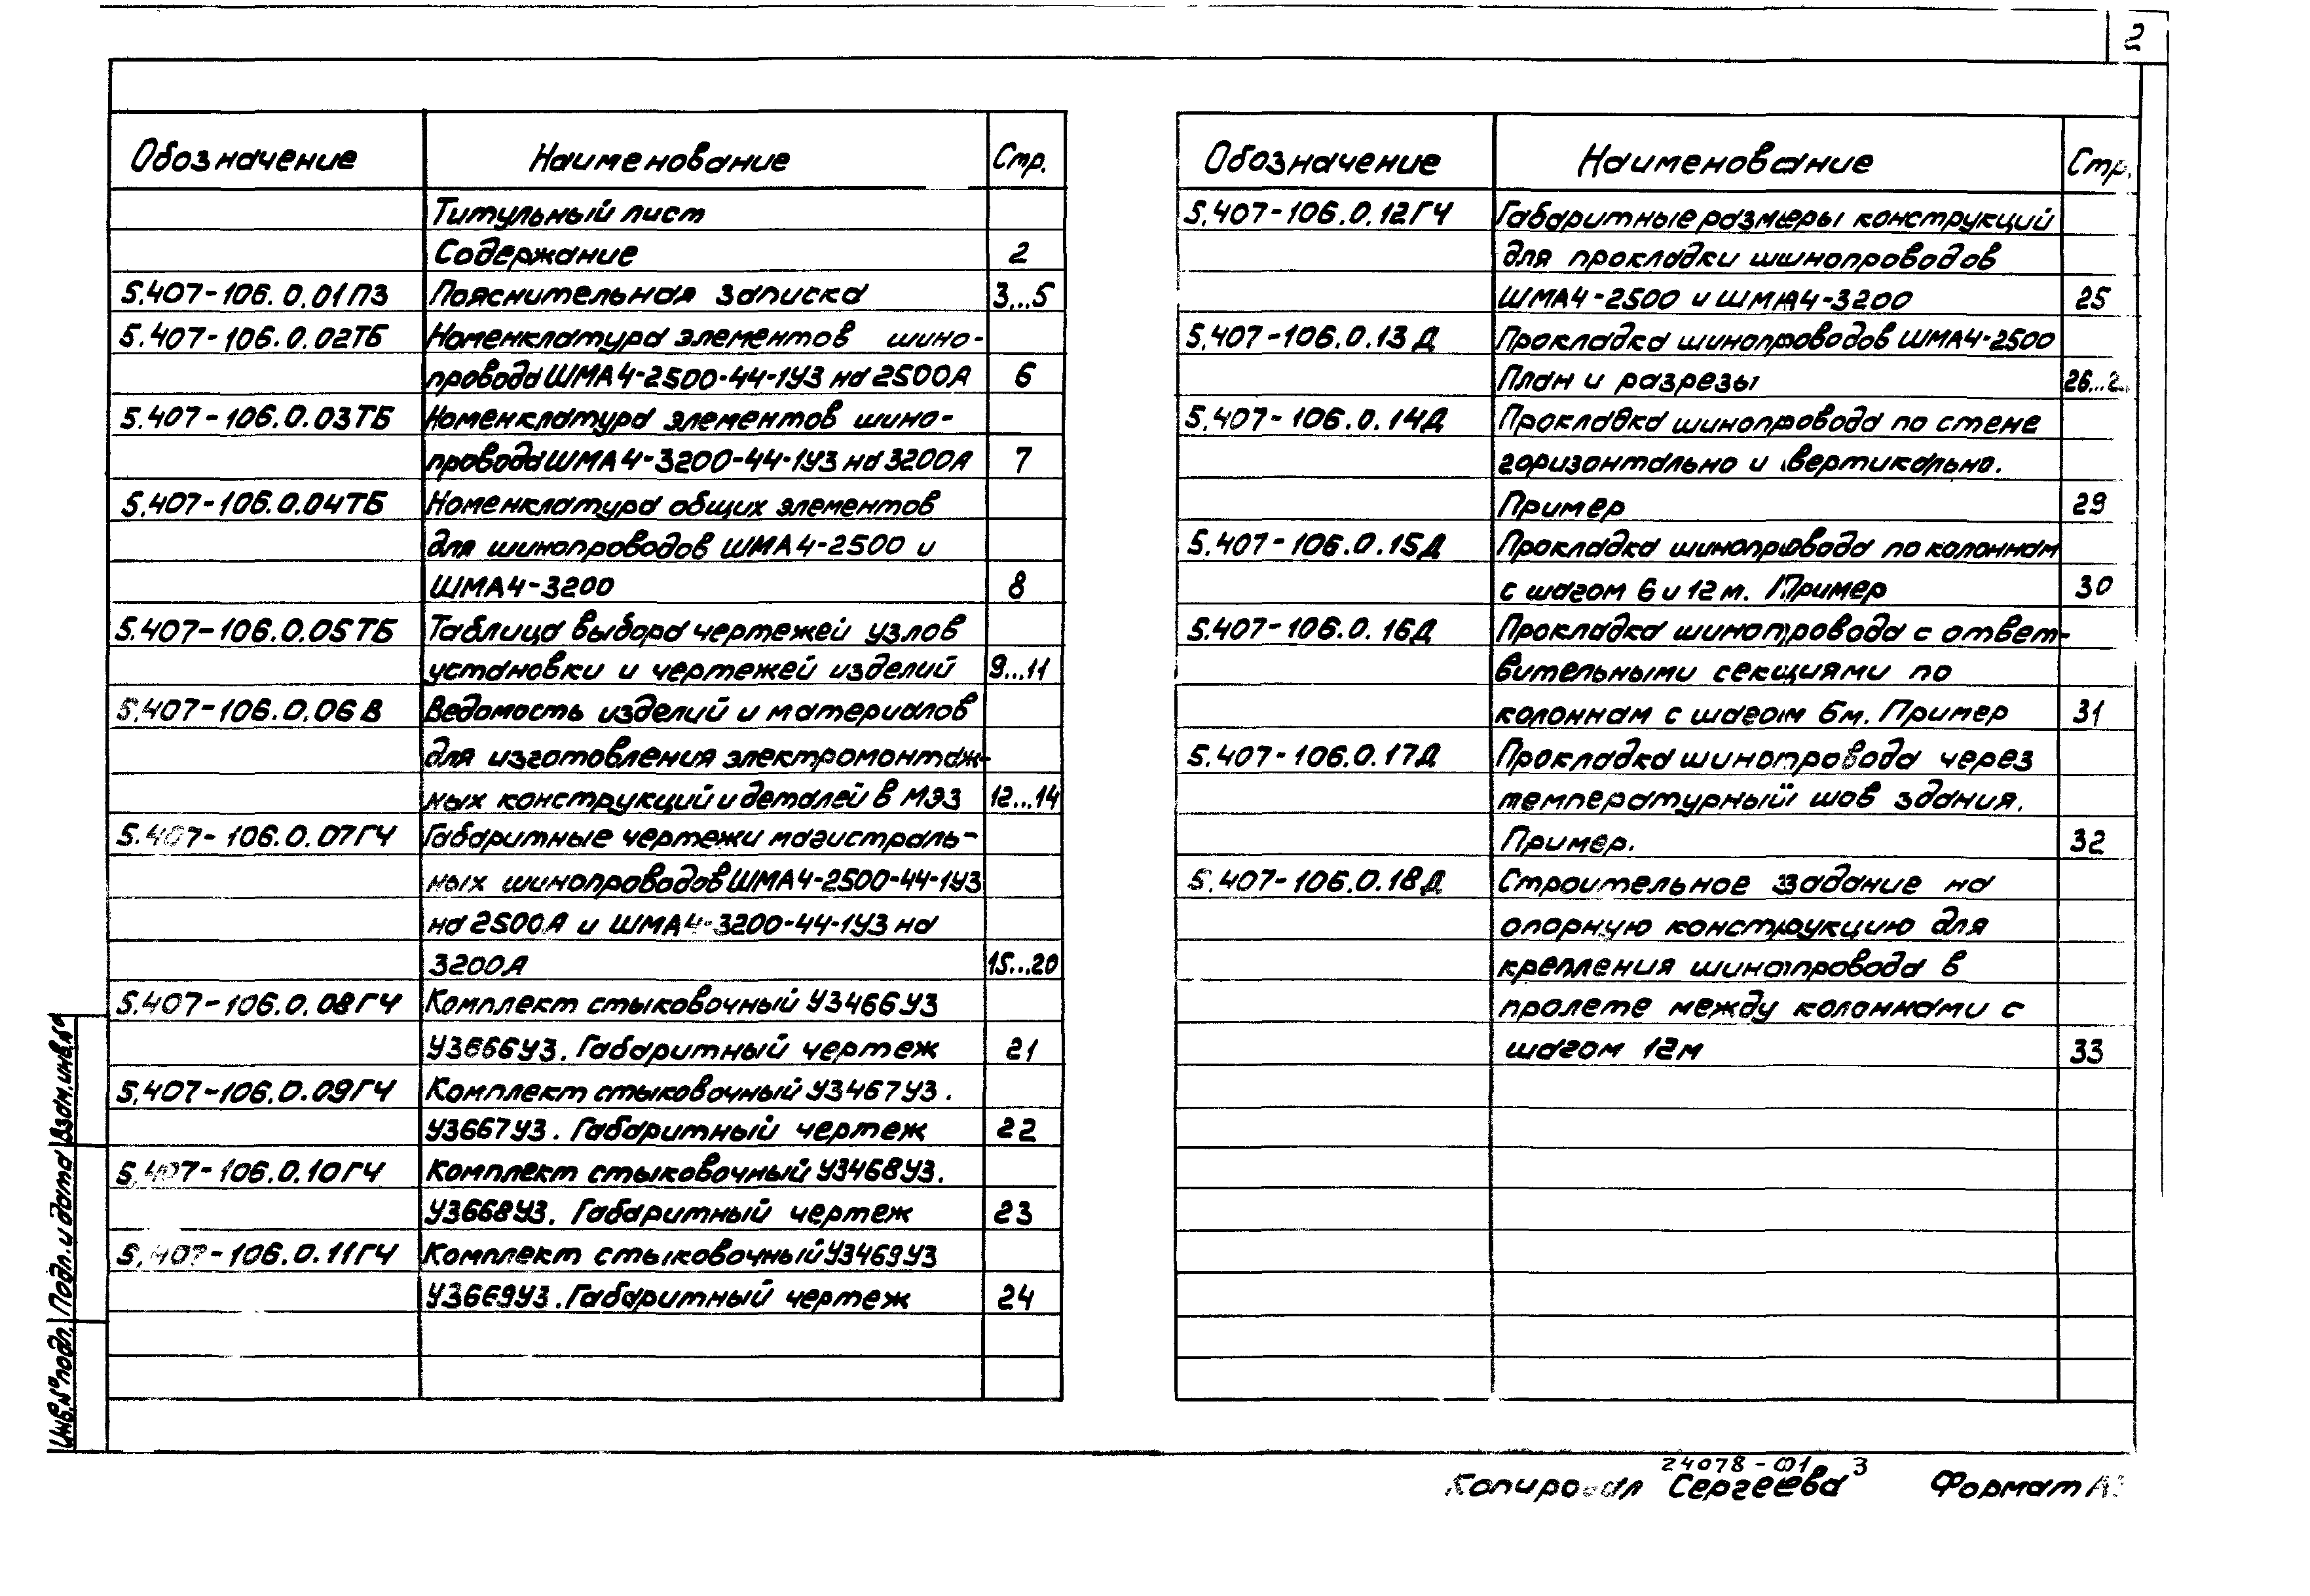 2
Обозначение Наименование Стр.
Титульный лист
Содержание 2
5.407-106.0.01ПЗ Пояснительная записка 3...5
5.407-106.0.02ТБ Номенклатура элементов шино-
провода ШМА4-2500-44-1У3 на 2500А 6
5.407-106.0.03ТБ Номенклатура элементов шино-
провода ШМА4-3200-44-1У3 на 3200А 7
5.407-106.0.04ТБ Номенклатура общих элементов
для шинопроводов ШМА4-2500 и
ШМА4-3200 8
5.407-106.0.05ТБ Таблица выбора чертежей узлов
установки и чертежей изделий 9...11
5.407-106.0.06В Ведомость изделий и материалов
для изготовления электромонтаж-
ных конструкций и деталей в МЭЗ 12...14
5.407-106.0.07ГЧ Габаритные чертежи магистраль-
ных шинопроводов ШМА4-2500-44-1У3
на 2500А и ШМА4-3200-44-1У3 на
3200А 15...20
5.407-106.0.08ГЧ Комплект стыковочный У3466У3
У3666У3. Габаритный чертеж 21
5.407-106.0.09ГЧ Комплект стыковочный У3467У3.
У3667У3. Габаритный чертеж 22
5.407-106.0.10ГЧ Комплект стыковочный У3468У3.
У3668У3. Габаритный чертеж 23
5.407-106.0.11ГЧ Комплект стыковочный У3469У3
У3669У3. Габаритный чертеж 24
Обозначение Наименование Стр.
5.407-106.0.12ГЧ Габаритные размеры конструкций
для прокладки шинопроводов
ШМА4-2500 и ШМА4-3200 25
5.407-106.0.13Д Прокладка шинопроводов ШМА4-2500
План и разрезы
5.407-106.0.14Д Прокладка шинопровода по стене
горизонтально и вертикально.
Пример 29
5.407-106.0.15Д Прокладка шинопровода по колоннам
с шагом 6 и 12 м. Пример 30
5.407-106.0.16Д Прокладка шинопровода с ответ-
вительными секциями по
колоннам с шагом 6м. Пример 31
5.407-106.0.17Д Прокладка шинопровода через
температурный шов здания.
Пример. 32
5.407-106.0.18Д Строительное задание на
опорную конструкцию для
крепления шинопровода в
пролете между колоннами с
шагом 12м 33
Инв.№ подл. Подп. и дата Взам.инв.№
24078-01 3
Копировал Сергеева Формат А3